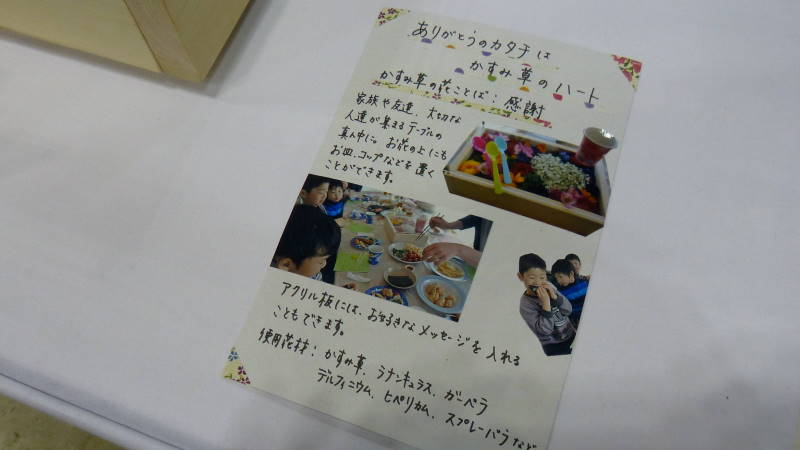 ありがとうのカタチは
かすみ草のハート
かすみ草の花ことば：感謝
家族や友達、大切な
人達が集まるテーブルの
真ん中に。お花の上にも
お皿、コップなどを置く
ことができます。
アクリル板には、お好きなメッセージを入れる
こともできます。
使用花材：かすみ草、ラナンキュラス、ガーベラ
デルフィニウム、ヒペリカム、スプレーバラなど